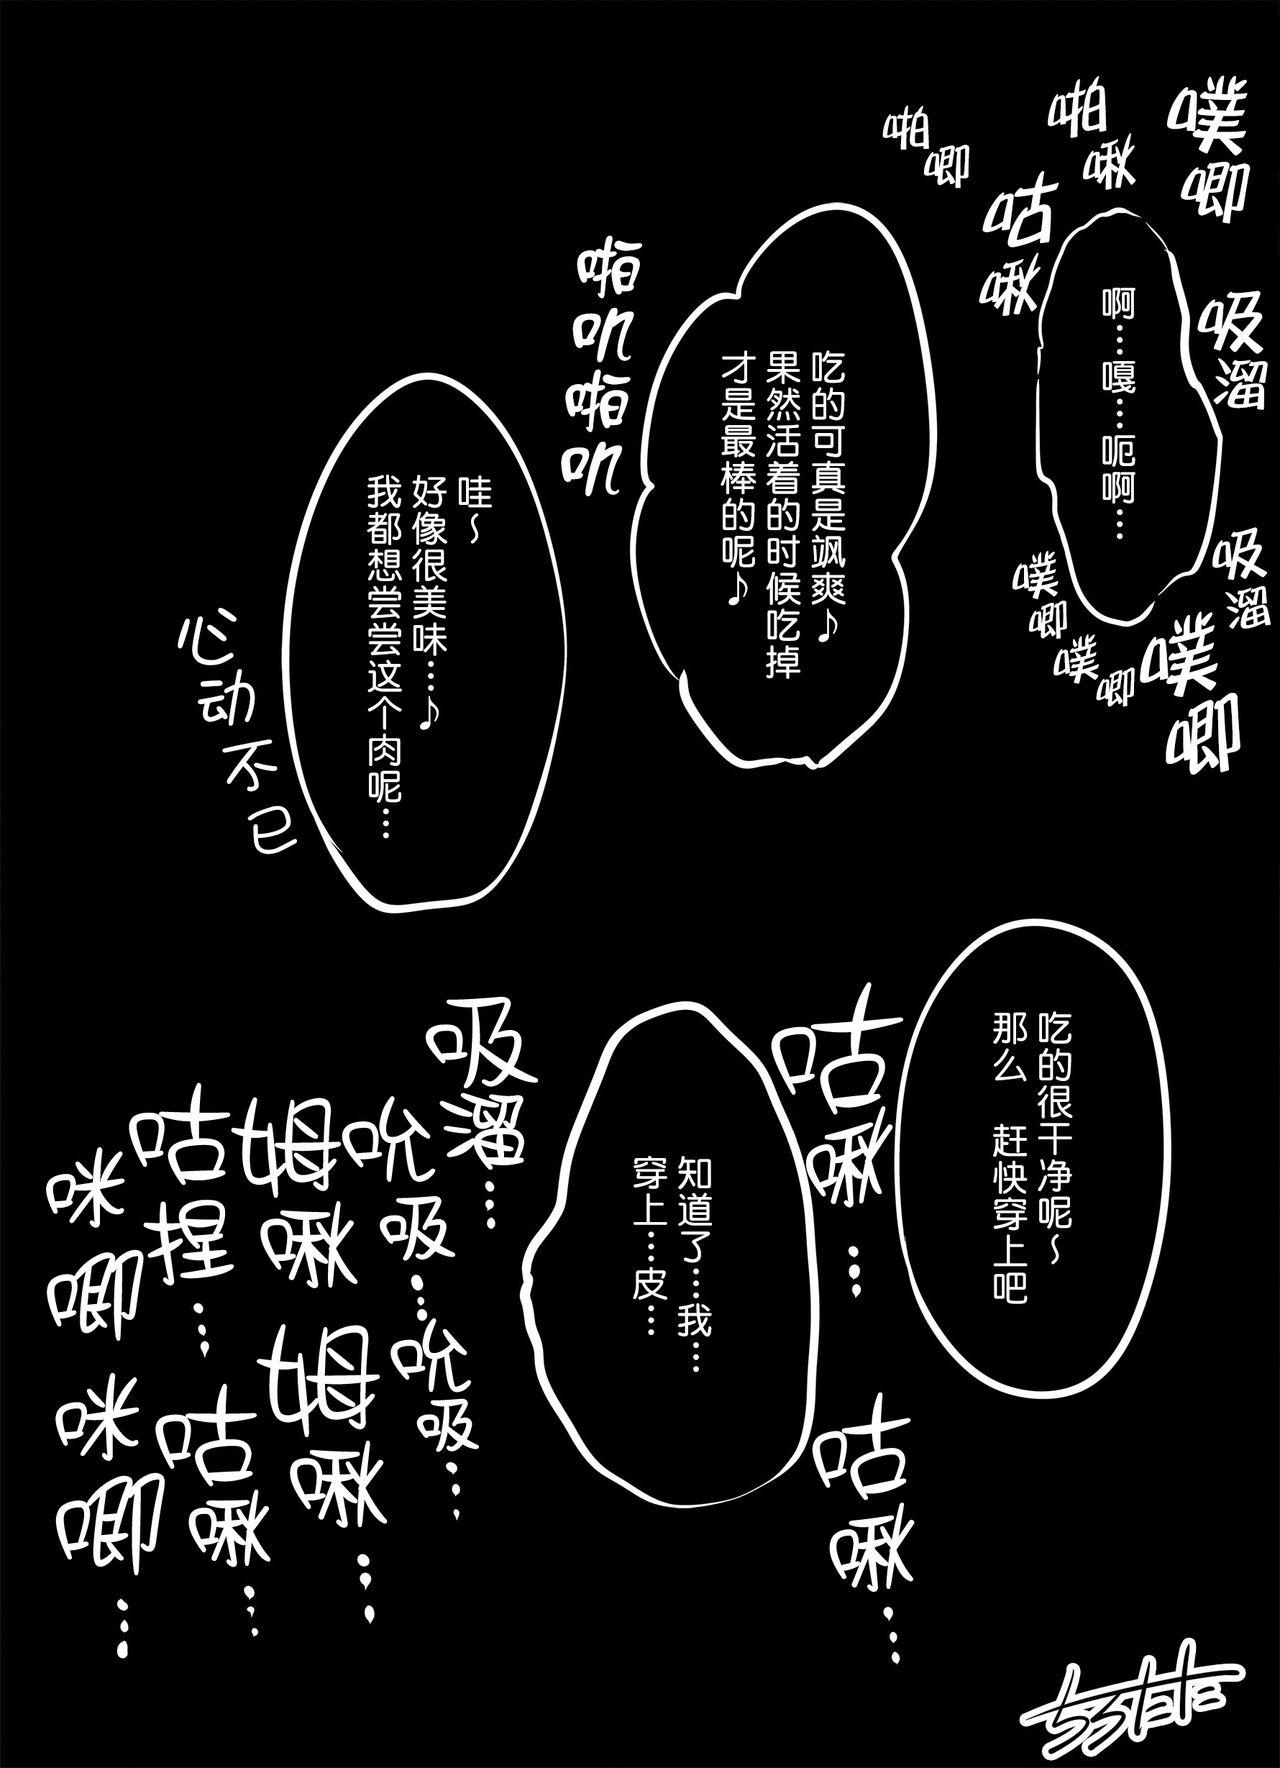 噗唧
啪啾
啪唧
咕啾
吸溜
啊…嘎…呃啊…
吸溜
噗唧
噗唧
噗唧
吃的可真是飒爽♪
果然活着的时候吃掉
才是最棒的呢♪
啪叽
啪叽
哇～
好像很美味…♪
我都想尝尝这个肉呢…
心动不已
吃的很干净呢～
那么 赶快穿上吧
咕啾…
咕啾…
知道了…我…
穿上…皮…
吸溜…
吮吸…
吮吸…
姆啾
姆啾…
咕捏…
咕啾…
咪唧
咪唧…
ちろたた